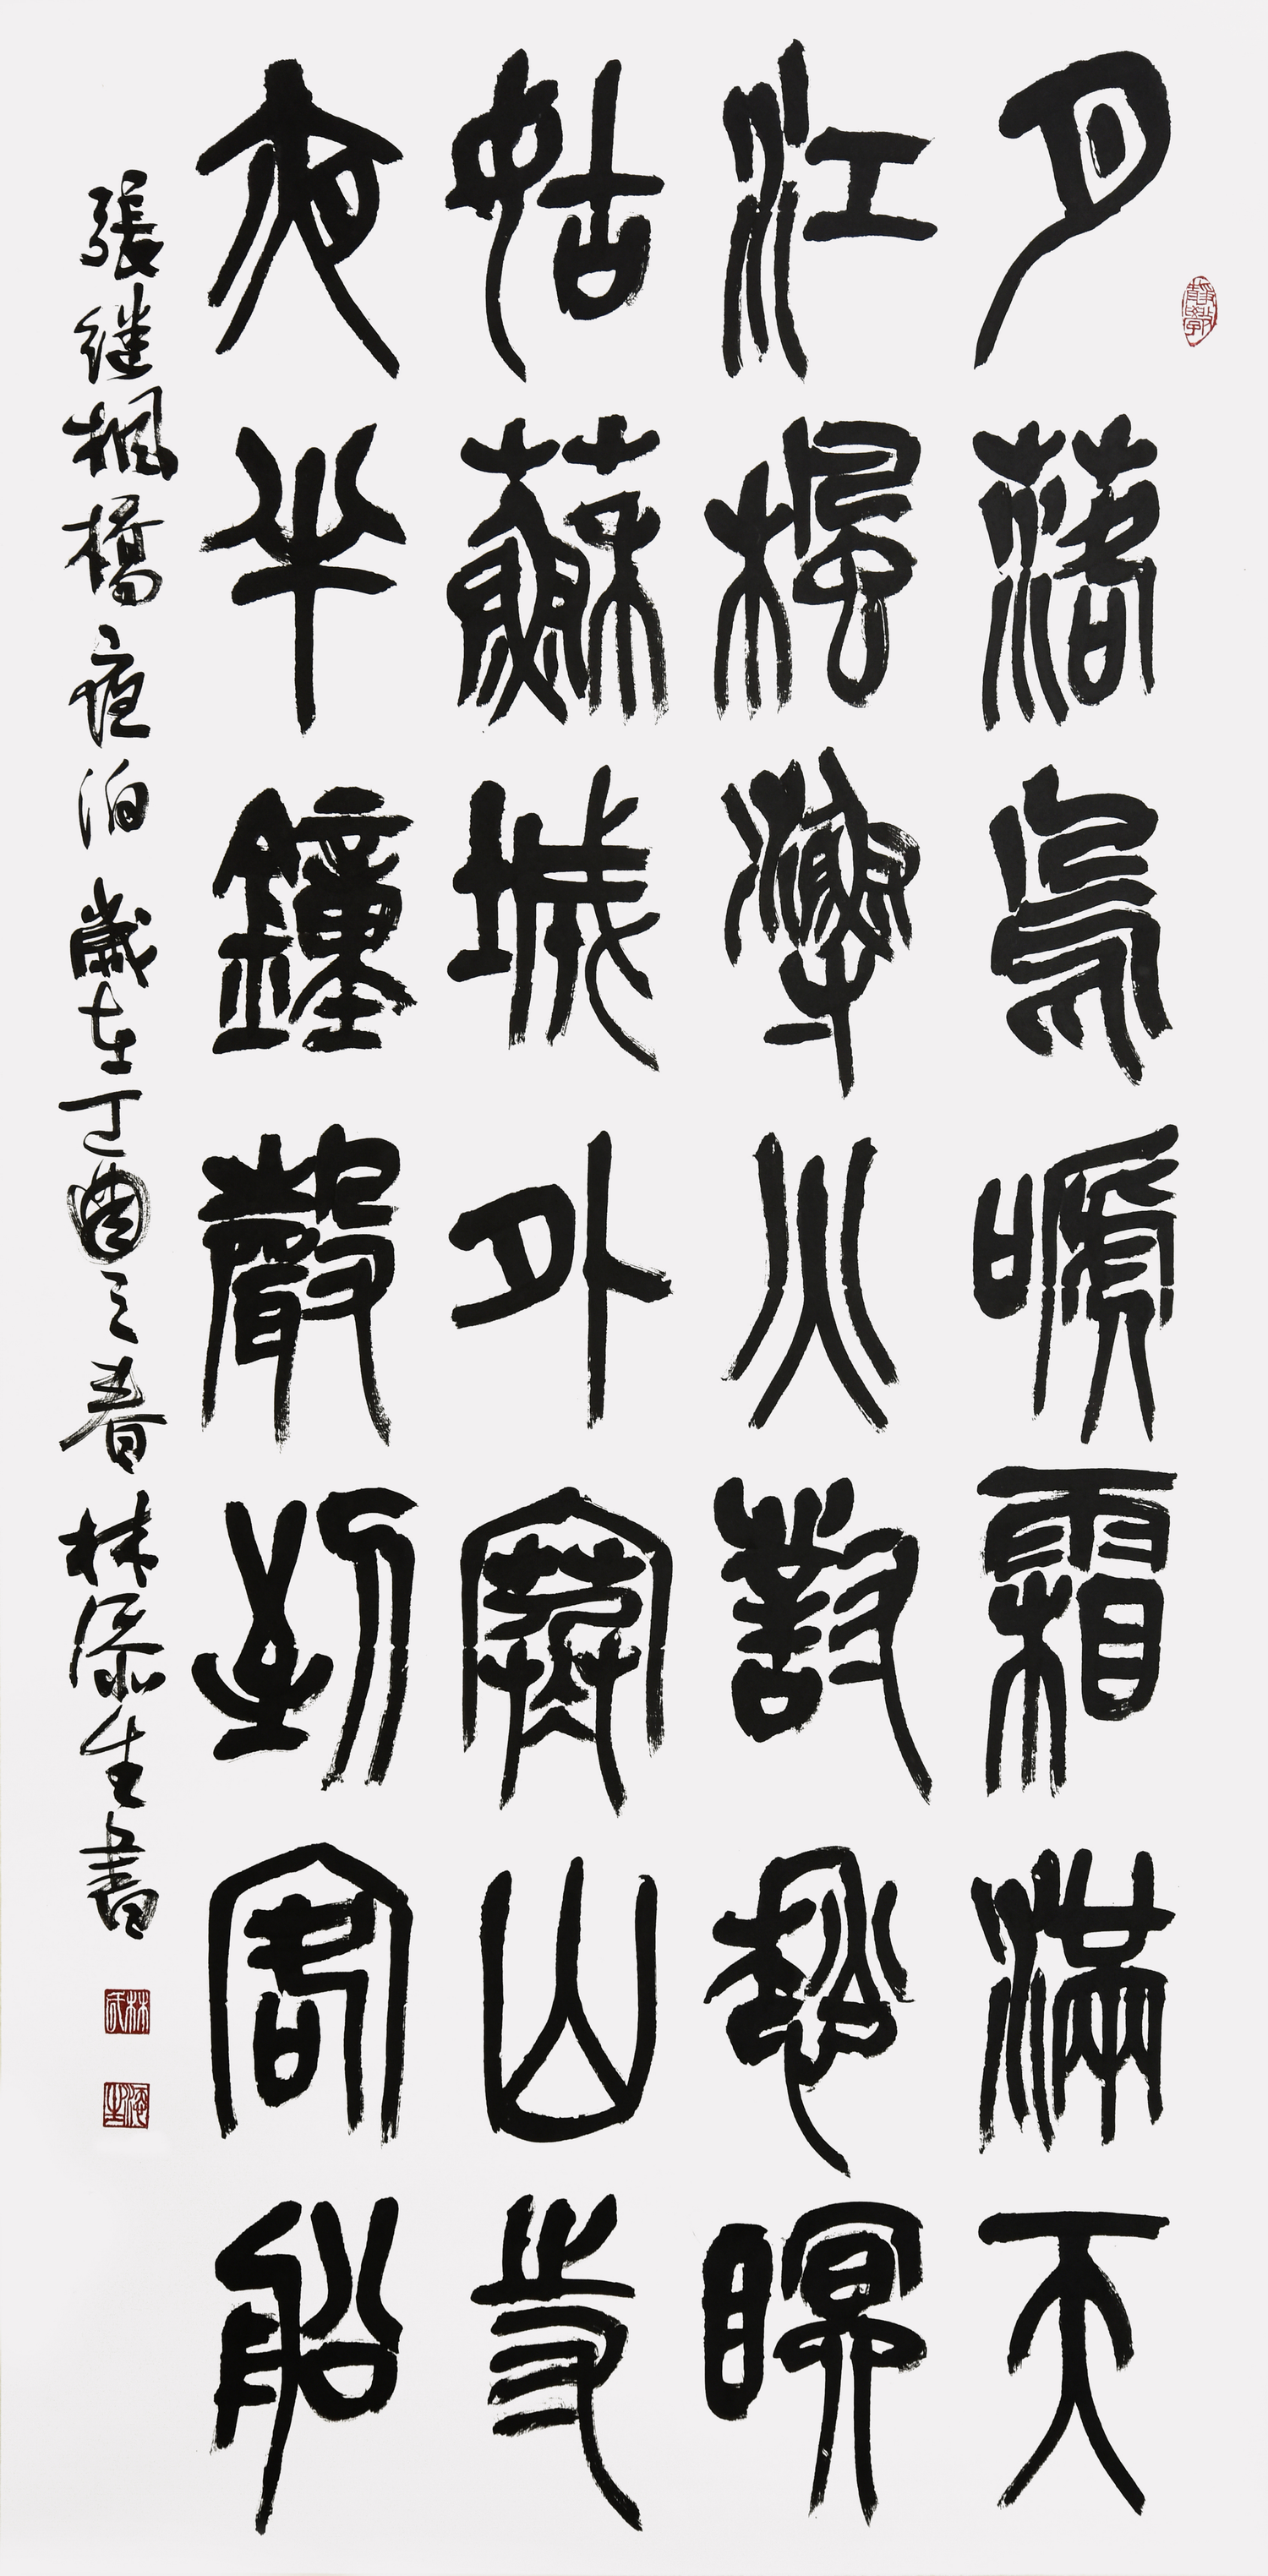 月落烏嗁霜滿天
江楓漁火對愁瞑
姑蘇城外寒山寺
夜半鐘聲到客船
張继楓橋夜泊 歲在丁酉之春 林添生書
林氏